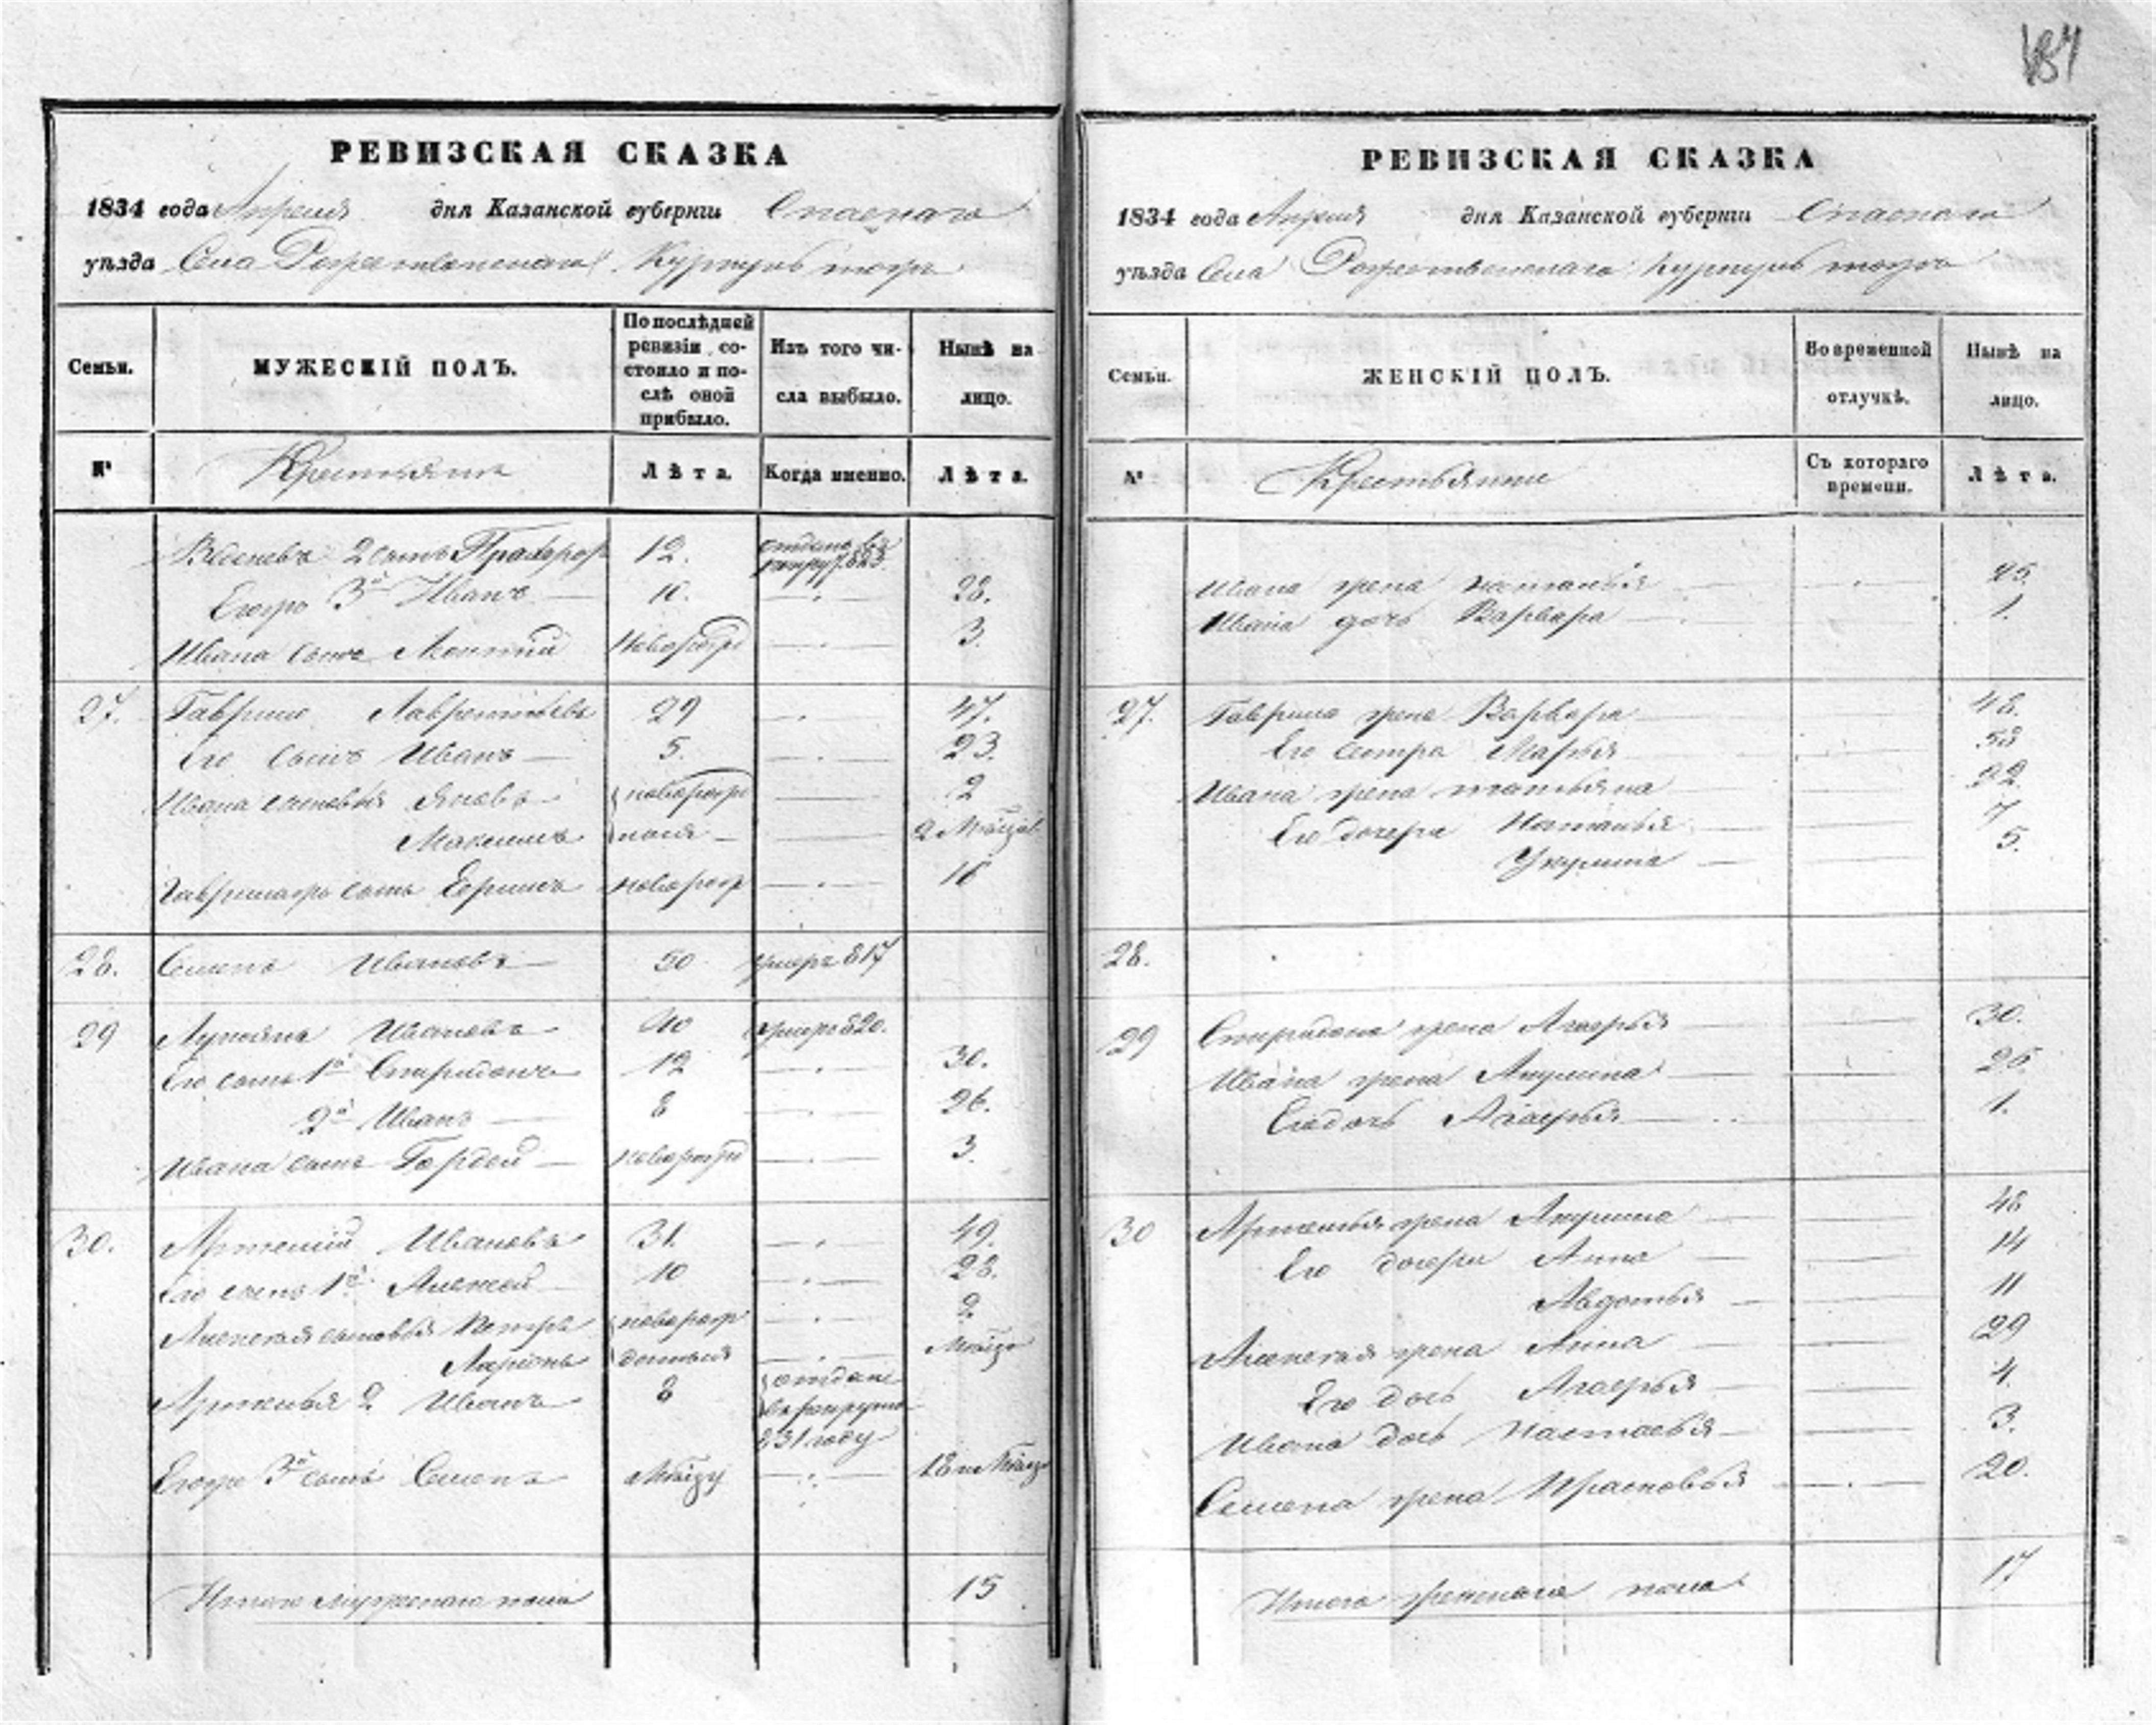 187
РЕВИЗСКАЯ СКАЗКА
1834 года Апреля дня Казанской губерніи Спаскаго
уѣзда Села Рожественскаго Куркуль тожъ
Семьи.
МУЖЕСКІЙ ПОЛЪ.
По послѣдней ревизіи состояло и послѣ оной прибыло.
Изъ того числа выбыло.
Нынѣ на лицо.
№
Крестьяне
Лѣта.
Когда именно.
Лѣта.
2 сынъ Прохоръ 12. отданъ въ рекру 823.
Егожъ 3й Иванъ 28.
Ивана сынъ новорож 3.
27. Гаврило Лаврентьевъ 29 47.
Его сынъ Иванъ 5. 23.
Ивана сыновья Яковъ новорож 2
Максимъ 2 мѣсяц
Гаврилы сынъ новорож 16
28. Семенъ Ивановъ 50 умеръ 817
29 Лукьянъ Ивановъ 40 умеръ 820.
Его сынъ 1й Спиридонъ 12 30.
2й Иванъ 8 26.
Ивана сынъ Гордей новорож 3.
30. Артемій Ивановъ 31. 49.
Его сынъ 1й Алексей 10 28.
Алексея сыновья Петръ новорож 2
Ларіонъ
Артемья 2 Иванъ 8 отданъ
въ рекруты
831 году
Егожъ 3й сынъ Семенъ
Итого мужескаго пола 15
РЕВИЗСКАЯ СКАЗКА
1834 года Апреля дня Казанской губерніи Спаскаго
уѣзда Села Рожественскаго Куркуль тожъ
Семьи.
ЖЕНСКІЙ ПОЛЪ.
Во временной отлучкѣ.
Нынѣ на лицо.
№
Крестьянки
Съ котораго времени.
Лѣта.
Ивана жена Наталья 25.
Ивана дочь Варвара 1.
27. Гаврила жена Варвара 48.
Его сестра Марья 53
Ивана жена Татьяна 22.
Его дочери Наталья 7
Укулина 5.
28.
29 Спиридона жена Агафья 30.
Ивана жена Акулина 26
Его дочь Агафья 1.
30 Артемья жена Акулина 48
Его дочери Анна 14
Авдотья 11
Алексея жена Анна 29
Его дочь Агафья 4.
Ивана дочь Настасья 3.
Семена жена Прасковья 20.
Итого женскаго пола 17